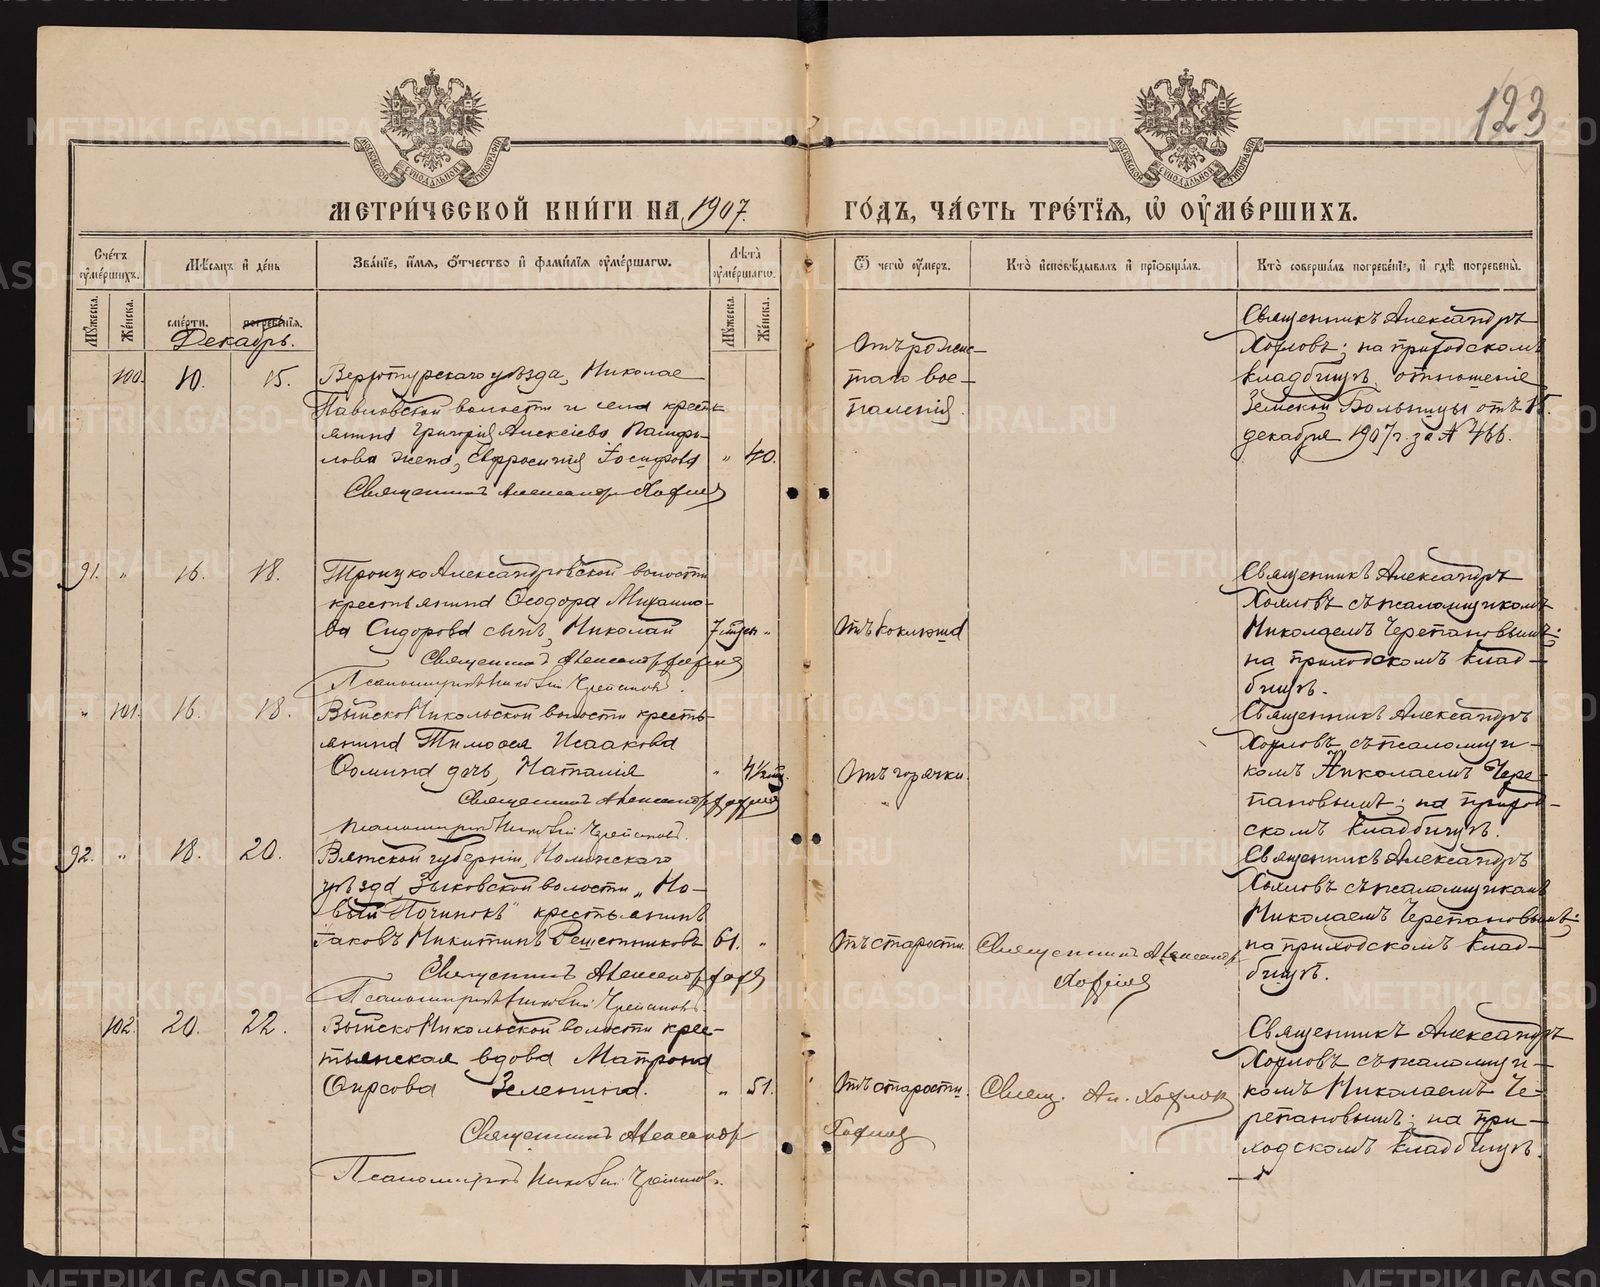 123
МОСКОВСКОЙ СѴНОДАЛЬНОЙ ТИПОГРАФІИ
МОСКОВСКОЙ СѴНОДАЛЬНОЙ ТИПОГРАФІИ
МЕТРИ́ЧЕСКОЙ КНИ́ГИ НА 1907.
ГО́ДЪ, ЧА́СТЬ ТРЕ́ТІЯ, Ѡ҆ ОУ҆МЕ́РШИХЪ.
Сче́тъ оу҆ме́ршихъ.
Мѣ́сяцъ и҆ де́нь
Зва́ніе, и҆́мя, ѻ҆́тчество и҆ фами́лія оу҆ме́ршагѡ.
Лѣ́та оу҆ме́ршагѡ.
Ѿ чегѡ̀ оу҆́меръ.
Кто̀ и҆сповѣ́дывалъ и҆ прїѡбща́лъ.
Кто̀ соверша́лъ погребе́ніе, и҆ гдѣ̀ погребены̀.
Мꙋ́жеска.
Же́нска.
сме́рти.
погребе́нія.
Мꙋ́жеска.
Же́нска.
Декабрь.
100. 10. 15.
Верхотурскаго уѣзда, Николае
Павловской волости и села кресть-
янина Григорія Алексіева Панфи-
лова жена, Евфросинія Іосифова " 40.
Священникъ Александръ Хохловъ
Отъ рожис-
таго вос-
паленія.
Священникъ Александръ
Хохловъ; на приходскомъ
кладбищѣ, отношеніе
Земской Больницы отъ 15.
декабря 1907 г. за № 466.
91. " 16. 18.
Троицко Александровской волости
крестьянина Ѳеодора Михаило-
ва Сидорова сынъ, Николай "
Священникъ Александръ Хохловъ
Псаломщикъ Николай Черепановъ.
Отъ коклюша
Священникъ Александръ
Хохловъ съ псаломщикомъ
Николаемъ Черепановымъ;
на приходскомъ клад-
бищѣ.
" 101. 16. 18.
Выйско Никольской волости кресть-
янина Тимоѳея Исаакова
Ѳомина дочь, Наталія "
Священникъ Александръ Хохловъ
Псаломщикъ Николай Черепановъ.
Отъ горячки.
Священникъ Александръ
Хохловъ съ псаломщи-
комъ Николаемъ Чере-
пановымъ; на приход-
скомъ кладбищѣ.
92. " 18. 20.
Вятской губерніи, Нолинскаго
уѣзда Зыковской волости „Но-
вый Починокъ" крестьянинъ
Іаковъ Никитинъ Решетниковъ 61. "
Священникъ Александръ Хохловъ
Псаломщикъ Николай Черепановъ.
Отъ старости.
Священникъ Александръ
Хохловъ
Священникъ Александръ
Хохловъ съ псаломщикомъ
Николаемъ Черепановымъ;
на приходскомъ клад-
бищѣ.
102. 20. 22.
Выйско Никольской волости крес-
тьянская вдова Матрона
Ѳирсова Зеленина. " 51.
Священникъ Александръ Хохловъ
Псаломщикъ Николай Черепановъ.
Отъ старости.
Свящ. Ал. Хохловъ
Священникъ Александръ
Хохловъ съ псаломщи-
комъ Николаемъ Че-
репановымъ; на при-
ходскомъ кладбищѣ.
METRIKI.GASO-URAL.RU